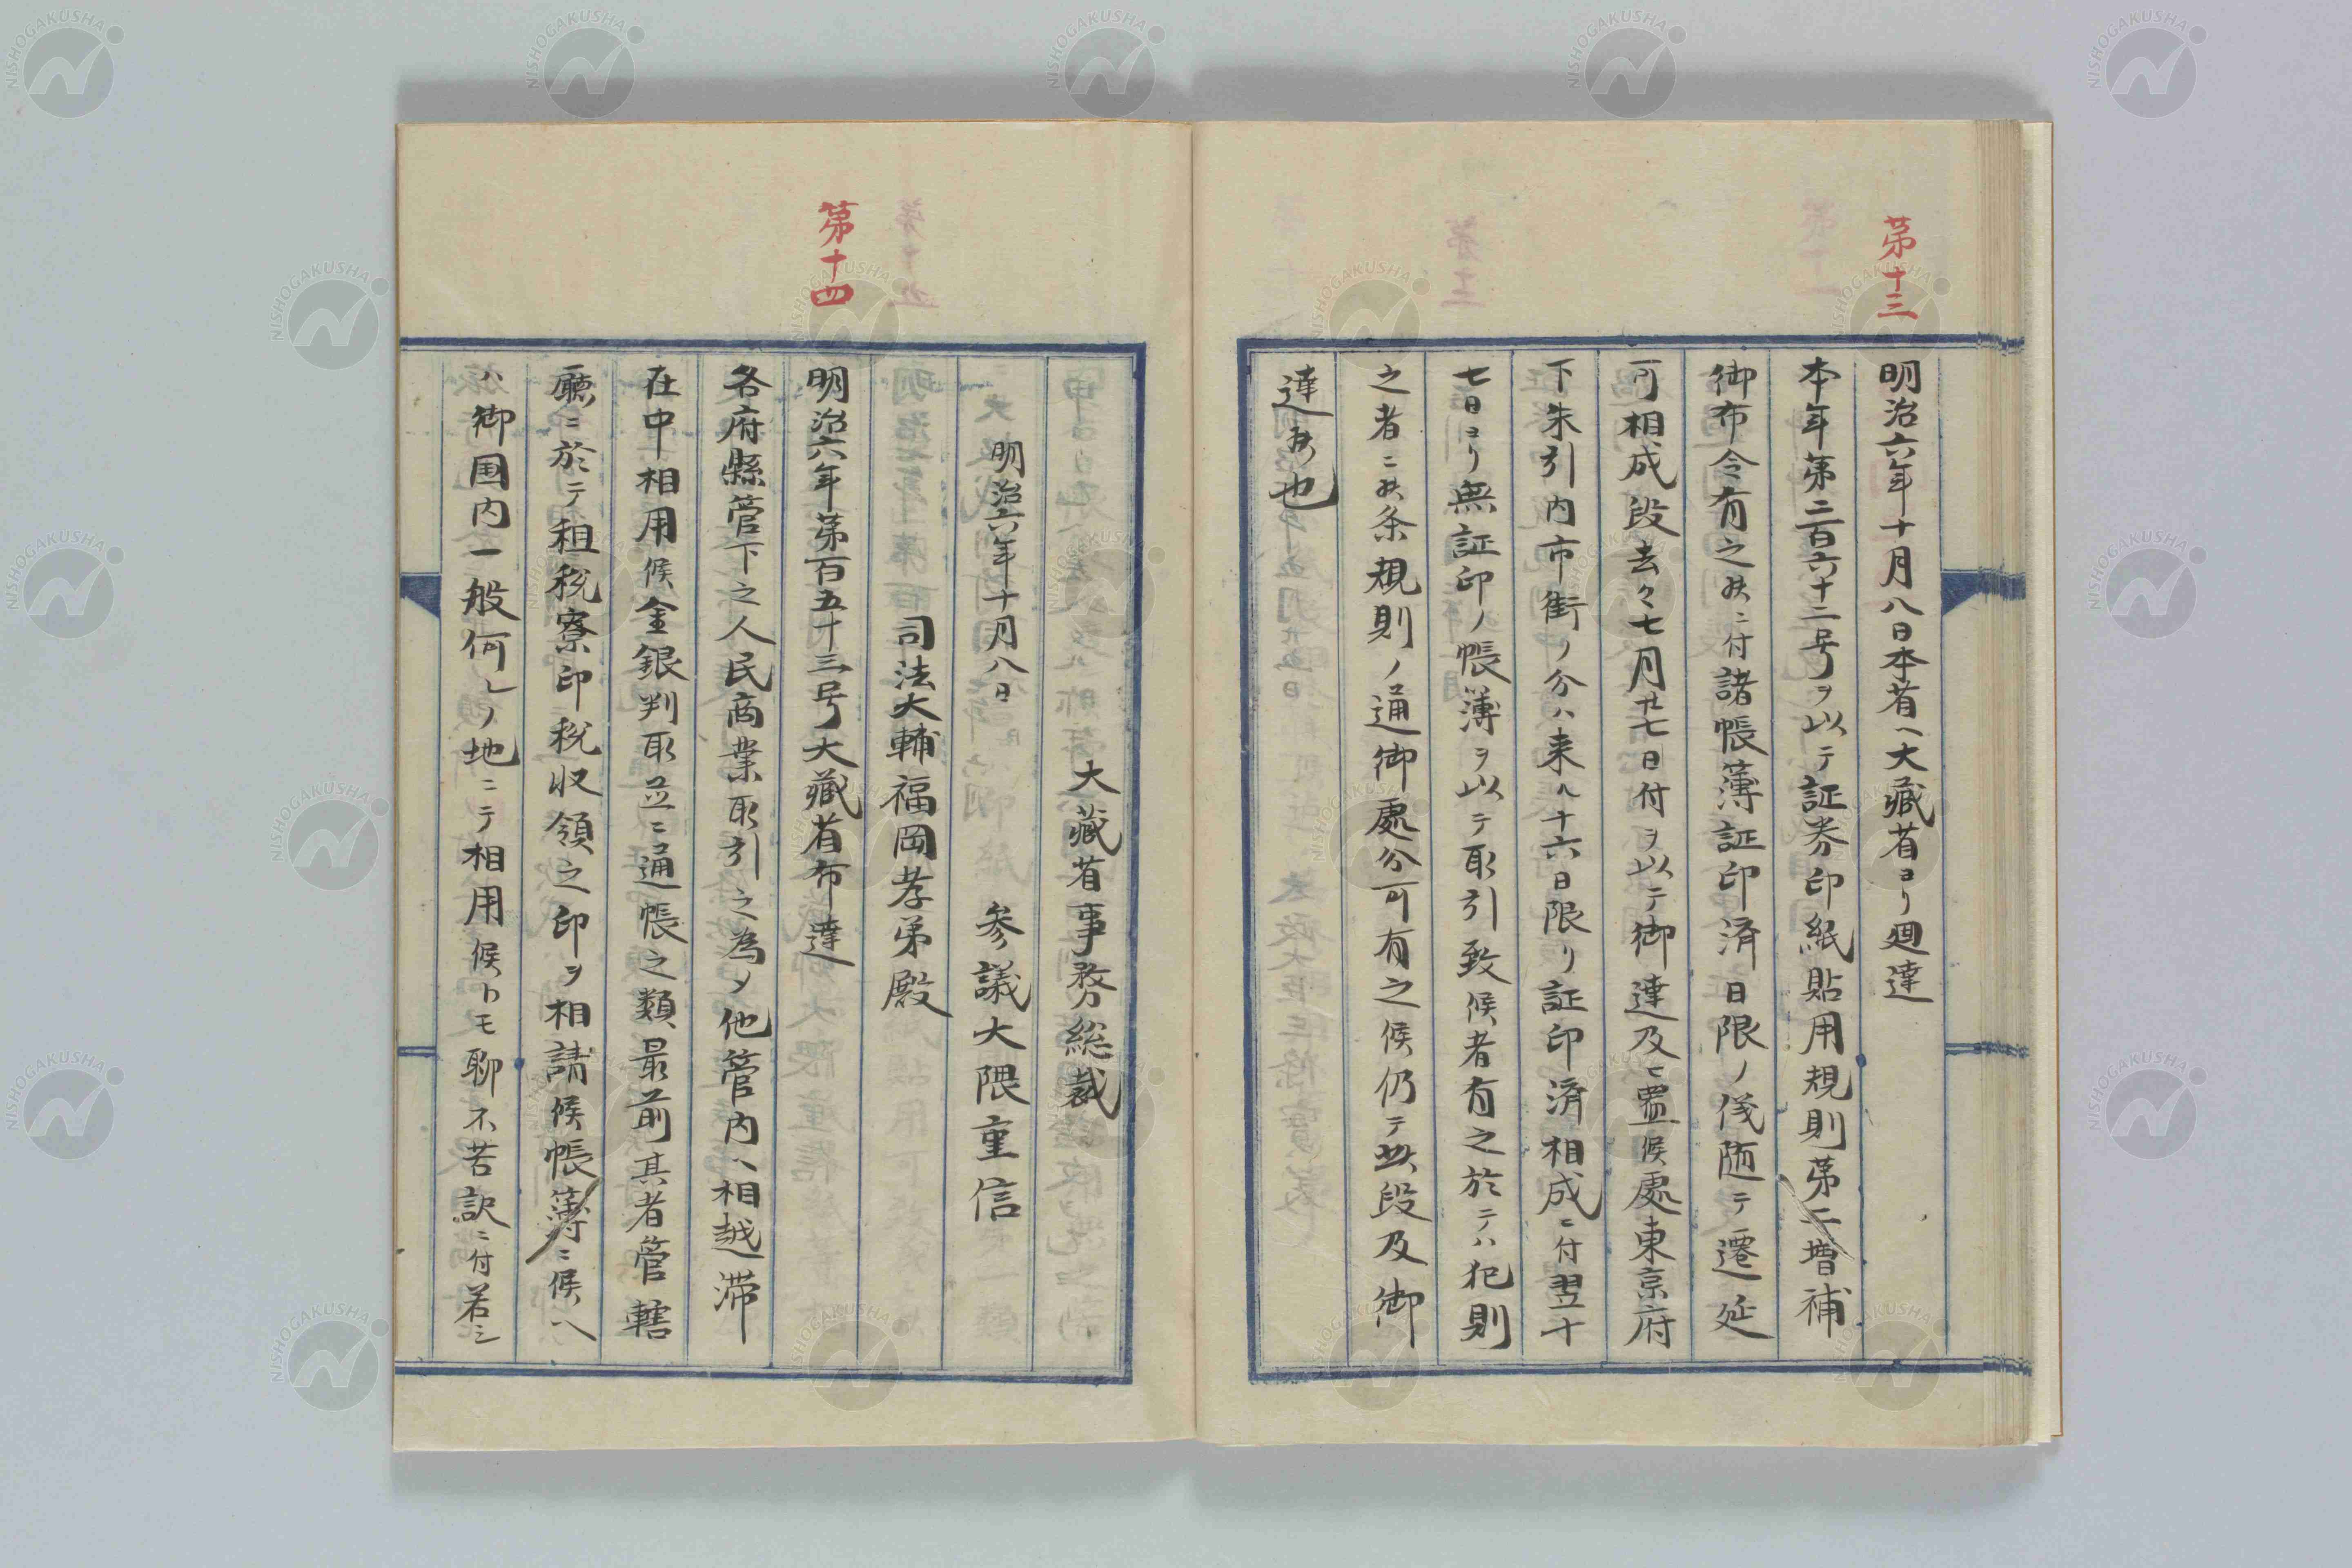 第十三
明治六年十月八日本省ヘ大藏省ヨリ廻達
本年第二百六十二号ヲ以テ証券印紙貼用規則第二増補
御布令有之候ニ付諸帳簿証印済日限ノ儀随テ遷延
可相成段去ル七月廿七日付ヲ以テ御達及ヒ置候處東京府
下朱引内市街ノ分ハ来ル十六日限リ証印済相成ニ付翌十
七日ヨリ無証印ノ帳簿ヲ以テ取引致候者有之於テハ犯則
之者ニ候条規則ノ通御處分可有之候仍テ此段及御
達候也
大藏省事務総裁
明治六年十月八日 参議大隈重信
司法大輔福岡孝弟殿
第十四
明治六年第百五十三号大藏省布達
各府縣管下之人民商業取引之為メ他管内ヘ相越滞
在中相用候金銀判取並ニ通帳之類最前其者管轄
廳ニ於テ租税寮印税収領之印ヲ相請候帳簿ニ候ヘ
ハ御国内一般何レノ地ニテ相用候トモ聊不苦訳ニ付若シ
NISHOGAKUSHA